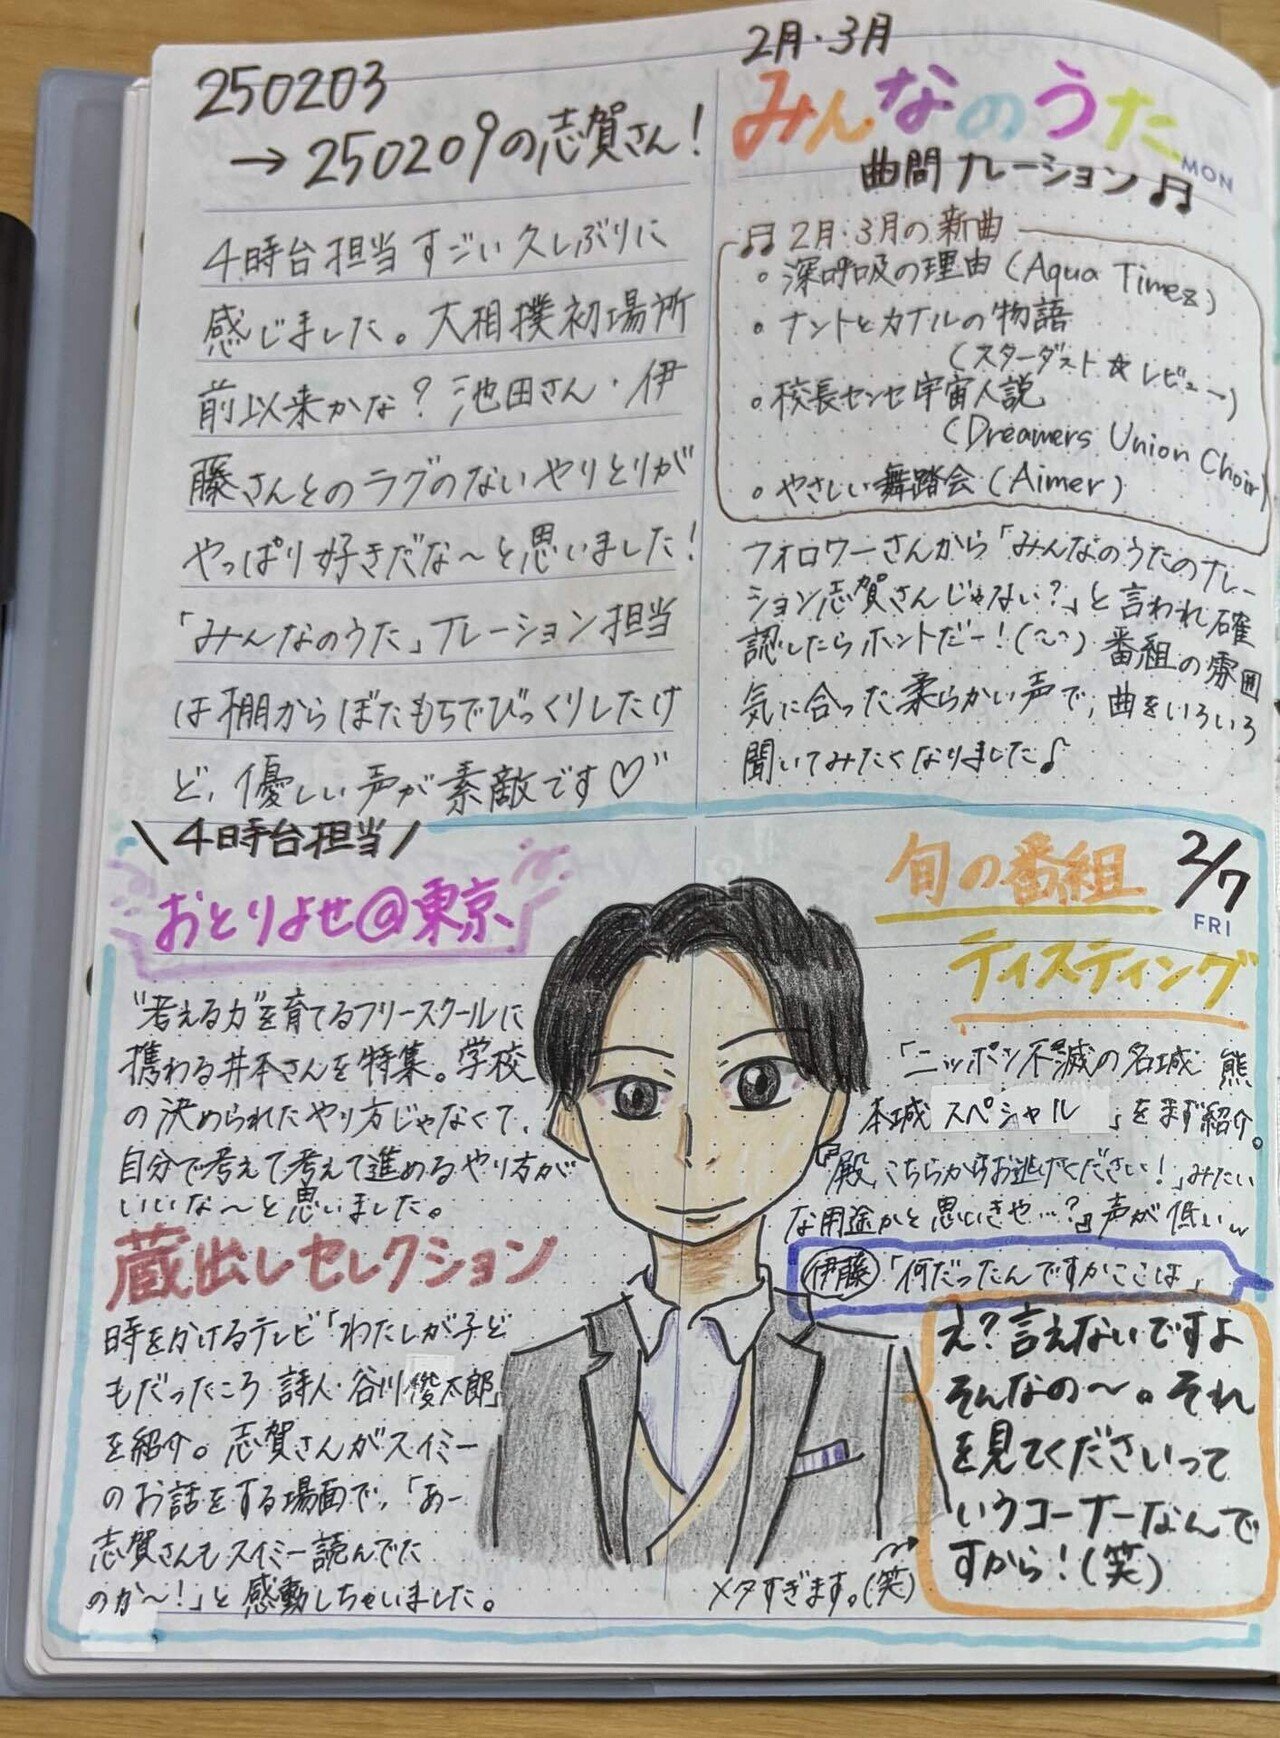 250203
→250209の志賀さん!
4時台担当すごい久しぶりに
感じました。大相撲初場所
前以来かな?池田さん・伊
藤さんとのラグのないやりとりが
やっぱり好きだな〜と思いました!
「みんなのうた」ナレーション担当
は棚からぼたもちでびっくりしたけ
ど、優しい声が素敵です♡"
2月・3月
みんなのうた
MON
曲間ナレーション♫
♫2月・3月の新曲
。深呼吸の理由(Aqua Timez)
。ナントとカナルの物語
(スターダスト☆レビュー)
。校長センセ宇宙人説
(Dreamers Union Choir)
。やさしい舞踏会(Aimer)
フォロワーさんから「みんなのうたのナレー
ション志賀さんじゃない?」と言われ確
認したらホントだー! 番組の雰囲
気に合った柔らかい声で、曲をいろいろ
聞いてみたくなりました♪
\4時台担当/
おとりよせ@東京
"考える力"を育てるフリースクールに
携わる井本さんを特集。学校
の決められたやり方じゃなくて、
自分で考えて考えて進めるやり方が
いいな〜と思いました。
蔵出しセレクション
時をかけるテレビ「わたしが子ど
もだったころ 詩人・谷川俊太郎」
を紹介。志賀さんがスイミー
のお話をする場面で、「あー
志賀さんもスイミー読んでた
のか〜!」と感動しちゃいました。
旬の番組
2/7
FRI
ティスティング
「ニッポン不滅の名城 熊
本城スペシャル」をまず紹介。
『「殿、こちらからお逃げください!」みたい
な用途かと思いきや…?』声が低いw
伊藤「何だったんですかここは」
え?言えないですよ
そんなの〜。それ
を見てくださいって
いうコーナーなんで
すから!(笑)
メタすぎます。(笑)